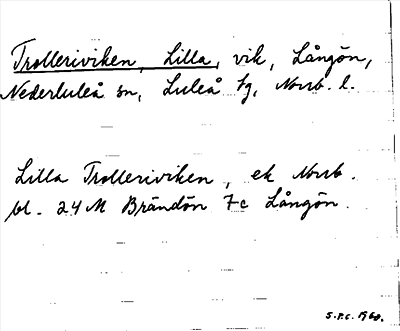 Trolleriviken, Lilla, vik, Långön,
Nederluleå sn, Luleå tg, Norrb. l.
Lilla Trolleriviken, ek Norrb.
bl. 24 M Brändön 7c Långön.
S.F.C. 1960.